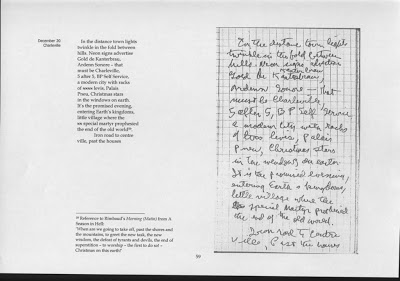 December 20
Charleville
In the distance town lights
twinkle in the fold between
hills. Neon signs advertise
Gold de Kanterbrau,
Ardenn Sonore – that
must be Charleville.
5 after 5, BP Self Service,
a modern city with racks
of levis, Palais
Pneu, Christmas stars
in the windows on earth.
It's the promised evening,
entering Earth's kingdoms,
little village where the
an special martyr prophesied
the end of the old world
Iron road to centre
ville, past the houses
Reference to Rimbaud's Morning (Matin) from A
Season in Hell:
"When are we going to take off, past the shores and
the mountains, to greet the new task, the new
wisdom, the defeat of tyrants and devils, the end of
superstition – to worship – the first to do so! –
Christmas on this earth?
59
In the distance town lights
twinkle in the fold between
hills. Neon signs advertise
Gold de Kanterbrau,
Ardenn Sonore – that
must be Charleville
5 after 5, BP Self Service
a modern city with racks
of levis, Palais
Pneu, Christmas stars
in the windows on earth
It is the promised evening,
entering Earth's kingdoms,
little village where the
special Martyr
the end of the old world.
Iron road to Centre
Ville, past the houses